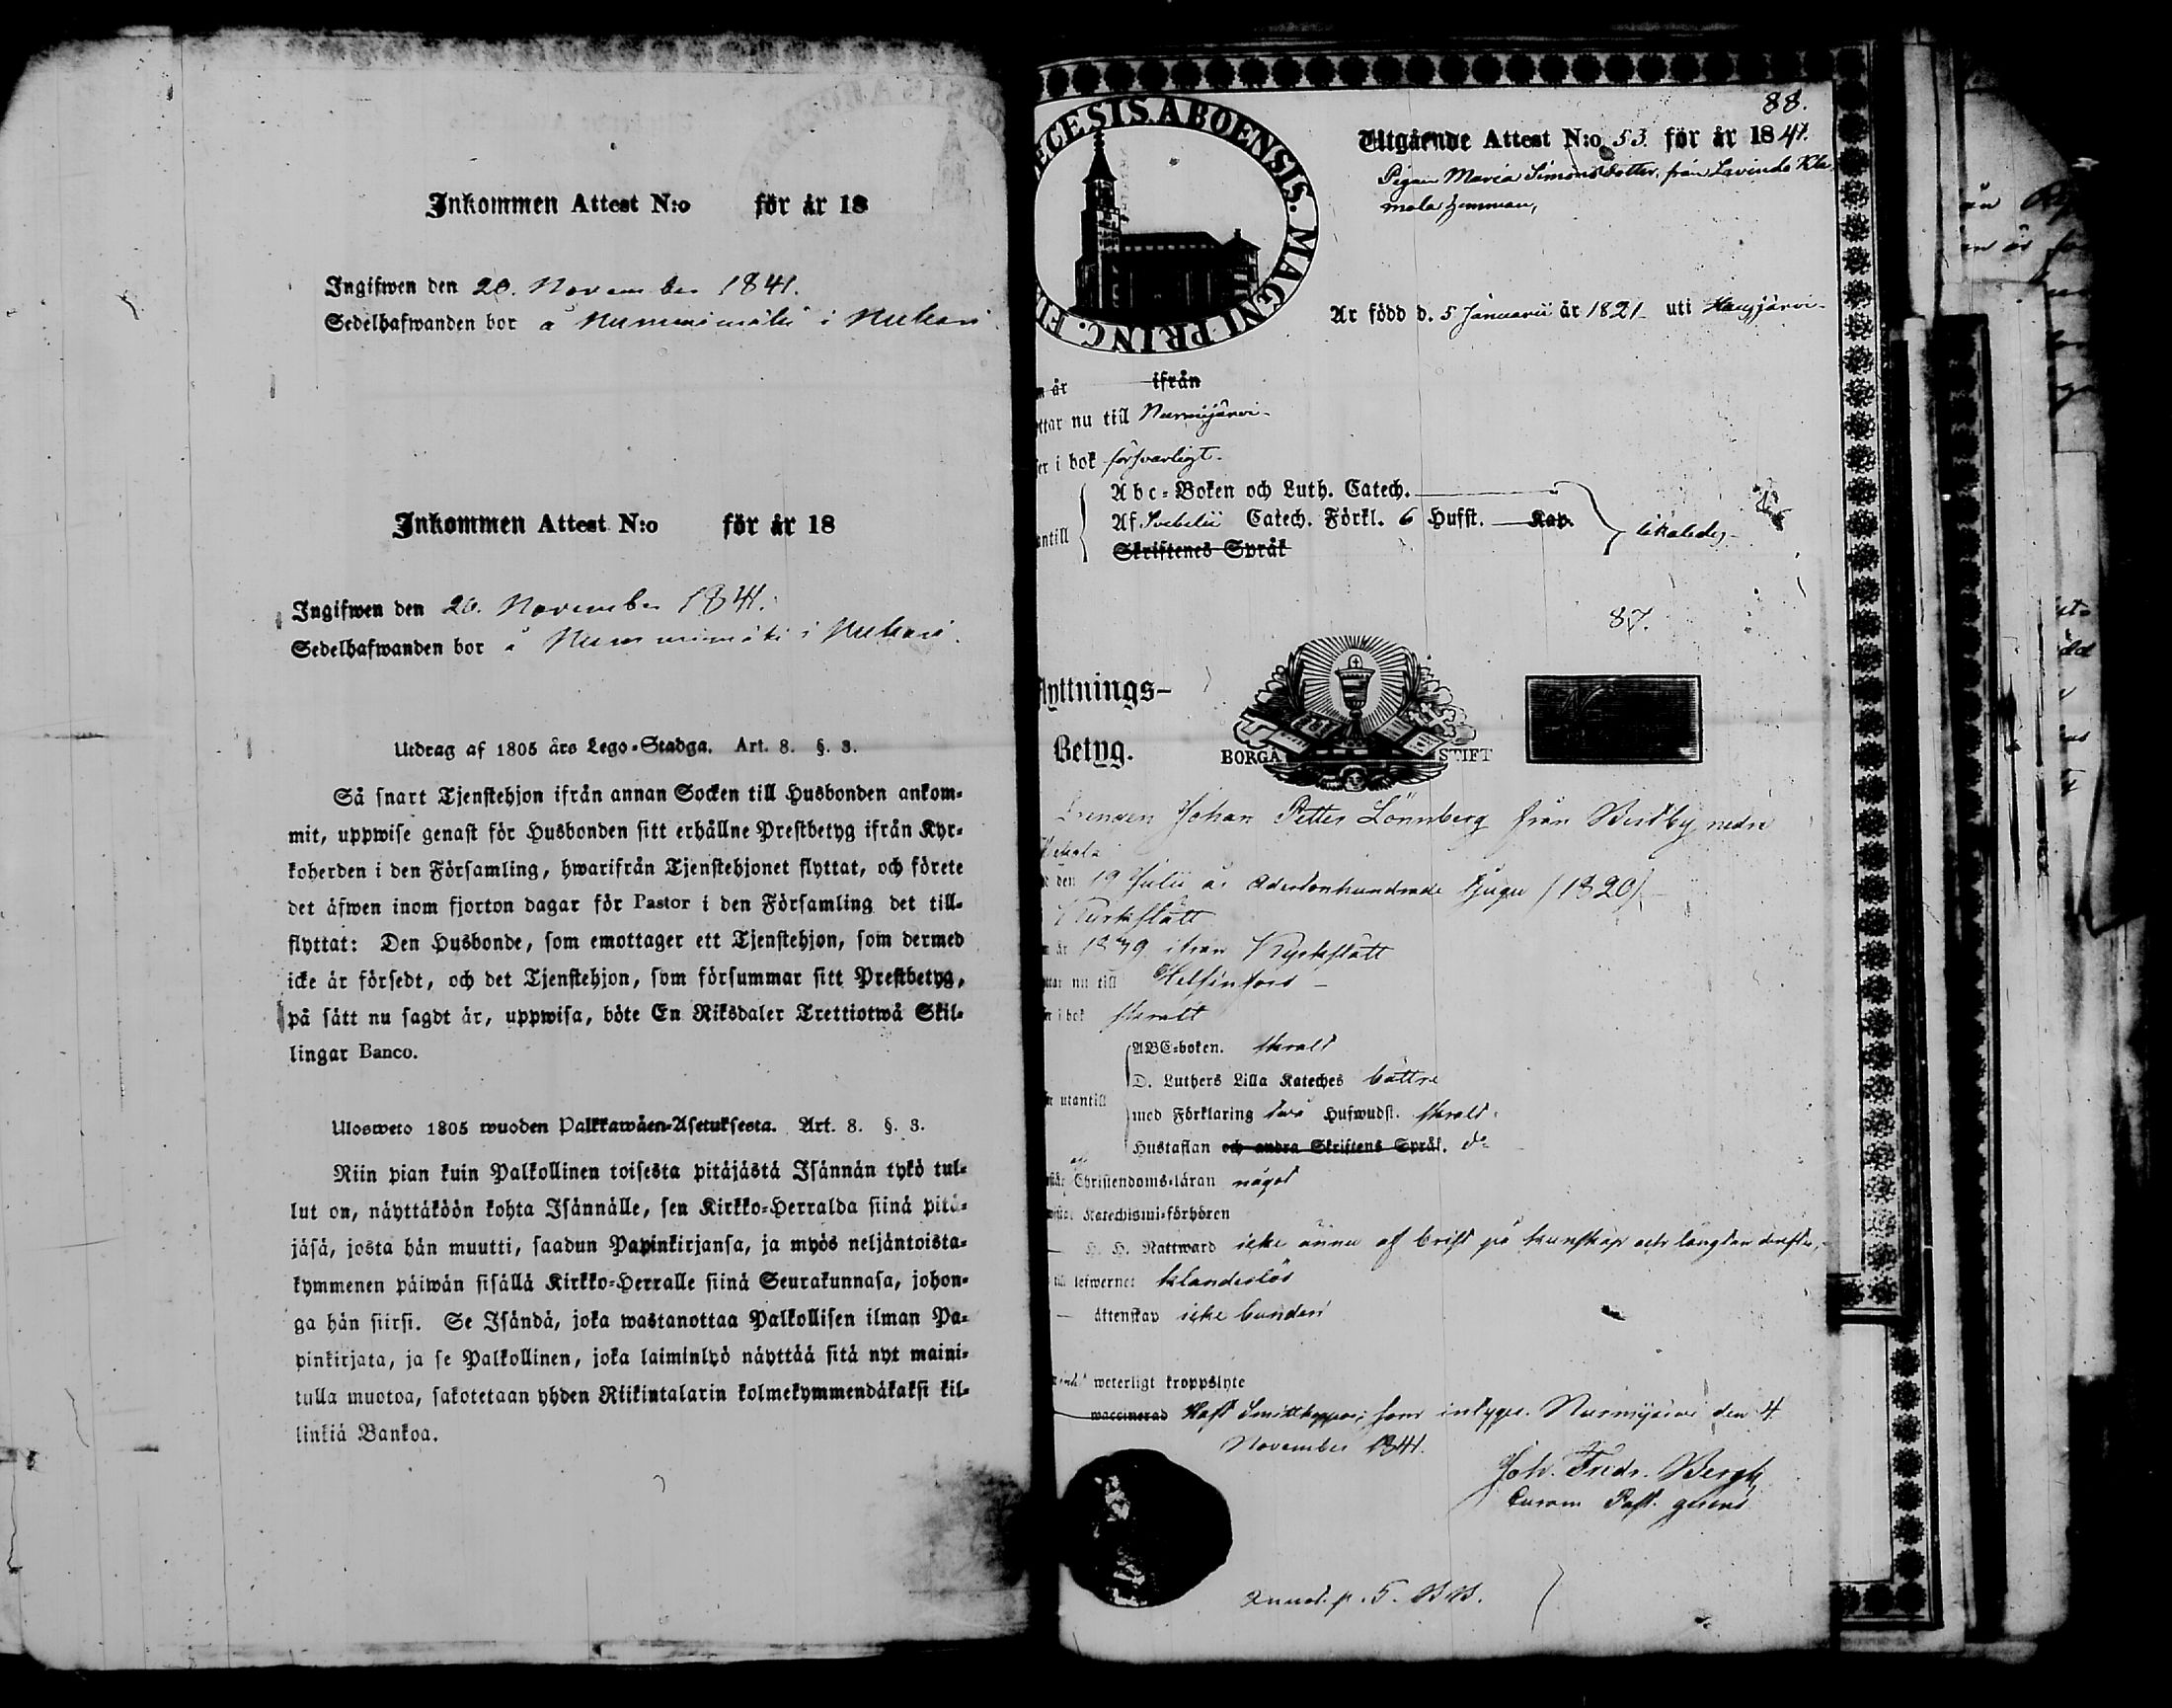 Inkommen Attest N:o för år 18
Ingifwen den 20. November 1841.
Sedelhafwanden bor å Nummimäki i
Inkommen Attest N:o för år 18
Ingifwen den 20. November 1841.
Sedelhafwanden bor å Nummimäki i
Utdrag af 1805 års Lego-Stadga. Art. 8. §. 3.
Så snart Tjenstehjon ifrån annan Socken till Husbonden ankom-
mit, uppwise genast för Husbonden sitt erhållne Prestbetyg ifrån Kyr-
koherden i den Församling, hwarifrån Tjenstehjonet flyttat, och förete
det äfwen inom fjorton dagar för Pastor i den Församling det till-
flyttat: Den Husbonde, som emottager ett Tjenstehjon, som dermed
icke är försedt, och det Tjenstehjon, som försummar sitt Prestbetyg,
på sätt nu sagdt är, uppwisa, böte En Riksdaler Trettiotwå Skil-
lingar Banco.
Ulosweto 1805 wuoden Palkkawäen-Asetuksesta. Art. 8. §. 3.
Niin pian kuin Palkollinen toisesta pitäjästä Isännän tykö tul-
lut on, näyttäköön kohta Isännälle, sen Kirkko-Herralda siinä pitä-
jäsä, josta hän muutti, saadun Papinkirjansa, ja myös neljäntoista-
kymmenen päiwän sisällä Kirkko-Herralle siinä Seurakunnasa, johon-
ga hän siirsi. Se Isändä, joka wastanottaa Palkollisen ilman Pa-
pinkirjata, ja se Palkollinen, joka laiminlyö näyttää sitä nyt maini-
tulla muotoa, sakotetaan yhden Riikintalarin kolmekymmendäkaksi kil-
linkiä Bankoa.
88.
ECESIS ABOENSIS. MAGNI PRINC. FI
Utgående Attest N:o 53 för år 1841.
Pigan Maria Simonsdotter, från
hemman,
Är född d. 5 Januarii år 1821 uti Hausjärvi
år ifrån
ttar nu till Nurmijärvi
er i bok försvarligt.
Abc-Boken och Luth. Catech.
Af Svebelii Catech. Förkl. 6 Hufst. Kap.
antill
likaledes
Skriftenes Språk
87.
lyttnings-
Betyg.
BORGA STIFT
Drengen Johan Petter Lönnberg från
den 19 Julii år Adertonhundrade tjugu (1820)
Kyrkslätt
år 1839 ifrån Kyrkslätt
ttar nu till Helsinfors
er i bok skralt
ABC-boken. skralt
D. Luthers Lilla Kateches bättre
utantill
med Förklaring två Hufwudst. skralt.
Hustaflan och andra Skriftens Språk. do
Christendoms-läran något
Katechismi-förhören
H. H. Nattward icke ännu af brist på kunskap och längtan derefter
till lefwernet klanderlös
äktenskap icke bunden
weterligt kroppslyte
waccinerad Haft Smittkoppor; som intygar. Nurmijärvi den 4
November 1841.
Joh. Fredr. Bergh
Curam Past. gerens